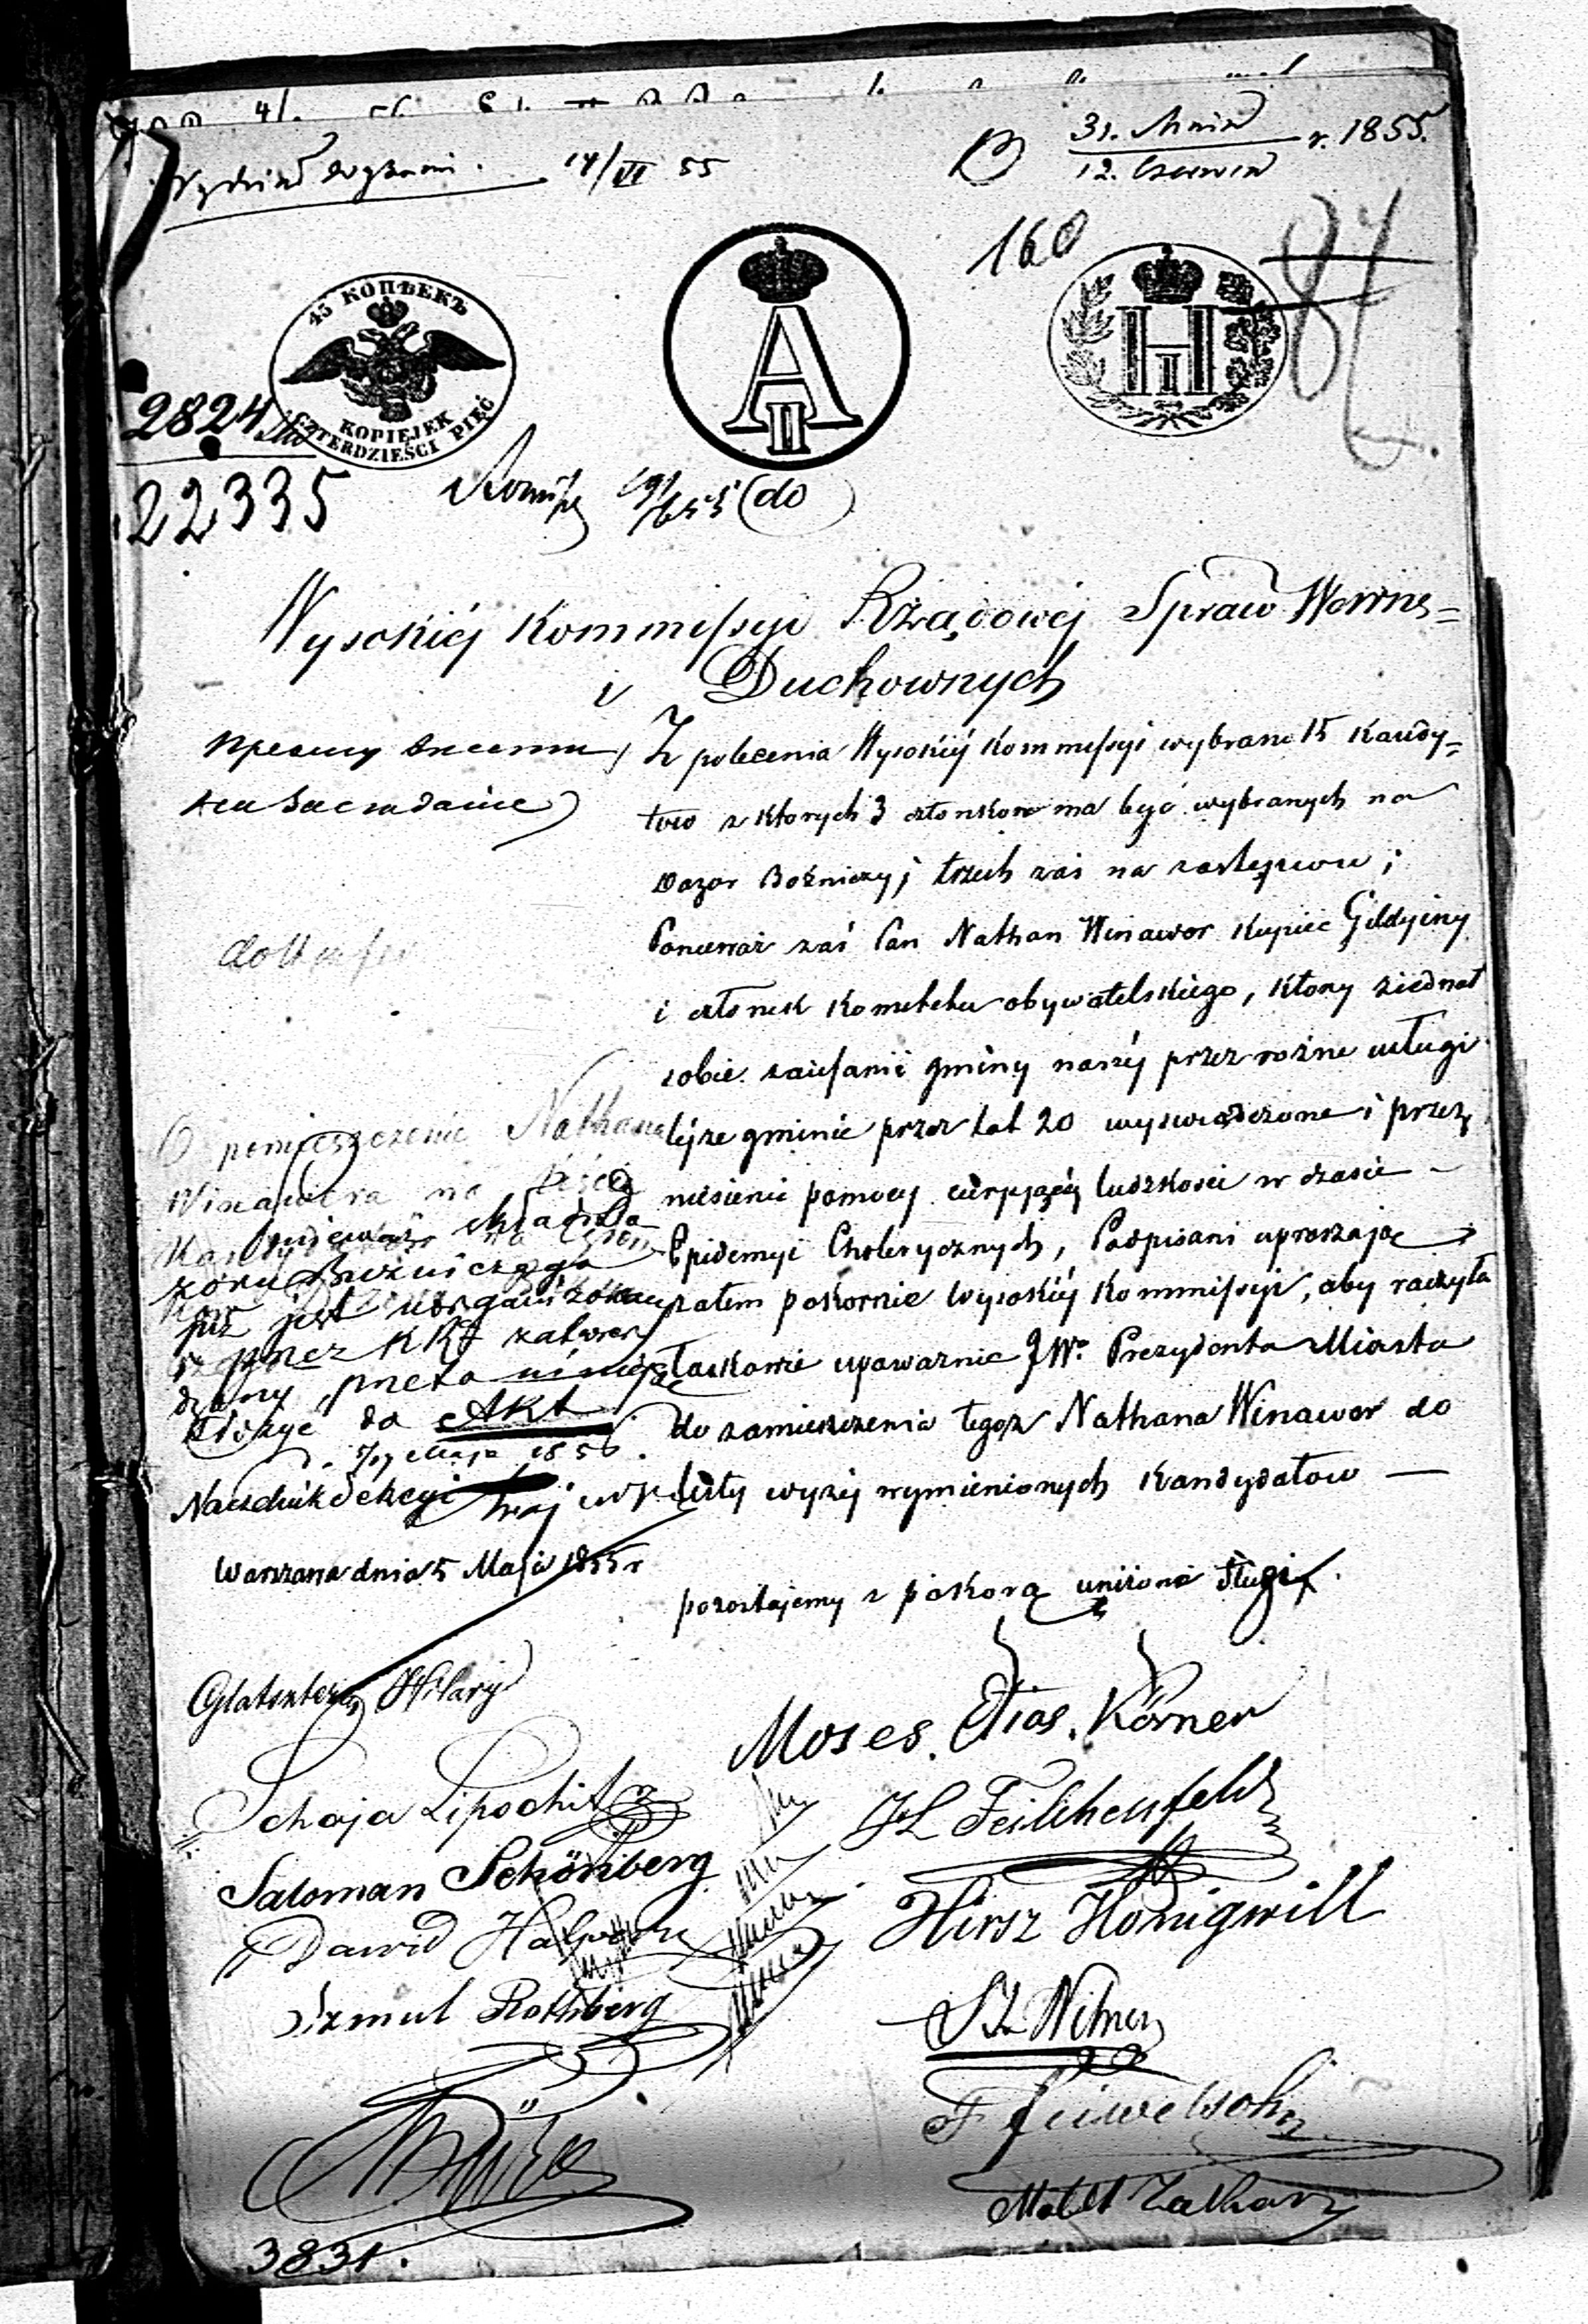 14/VI 55
31. Maja
12. Czerwca r. 1855.
160
45 КОПѢЕКЪ
KOPIEJEK
CZTERDZIEŚCI PIĘĆ
A II
H I
2824
22335
(do)
Wysokiéj Kommissyi Rządowéj Spraw Wewnę=
i Duchownych
Z polecenia Wysokiéj Kommissyi wybrano 15 Kandy=
tow z ktorych 3 członkow ma być wybranych na
Dozor Bożniczy; trzech zaś na zastępcow;
Poniewaz zaś Pan Nathan Winawer Kupiec Gildyiny
i członek Komitetu obywatelskiego, ktory ziednał
sobie zaufanie gminy naszéj przez rożne usługi
téjze gminie przez lat 20 wyswiadczone i przez
niesienie pomocy cierpiącéj ludzkosci w czasie
Epidemyi Cholerycznych, Podpisani upraszają
zatem pokornie Wysokiéj Kommissyi, aby raczyła
łaskawie upoważnić JWo Prezydenta Miasta
do zamieszczenia tegoz Nathana Winawer do
listy wyzéj wymienionych Kandydatow —
O pomieszczenie Nathana
Winawera na
Ponieważ skład Do
zoru Bozniczego
juz jest uorganizowany
przez KRz zatwier
dzony, przeto niniejsze
złożyć do Akt
Maja 1856.
Naczelnik Sekcyi
Warszawa dnia 5 Maja 1855 r
pozostajemy z pokorą uniżone sługi
Glatsztern Hilary
Moses. Elias. Körner
Schaja Lipschitz
JL Feilchenfeld
Saloman Schönberg
Hirsz Königwill
Dawid Halpern
Szmul Rothberg
3831.